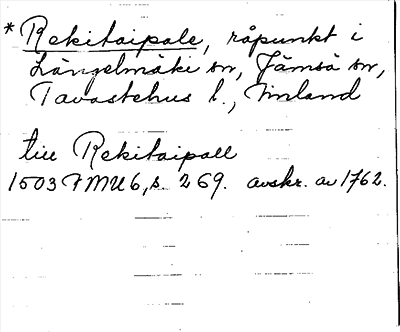 * Rekitaipale, råpunkt i
Längelmäki sn, Jämsä sn,
Tavastehus l., Finland
till Rekitaipall
1503 FMU 6, s. 269. avskr. av 1762.